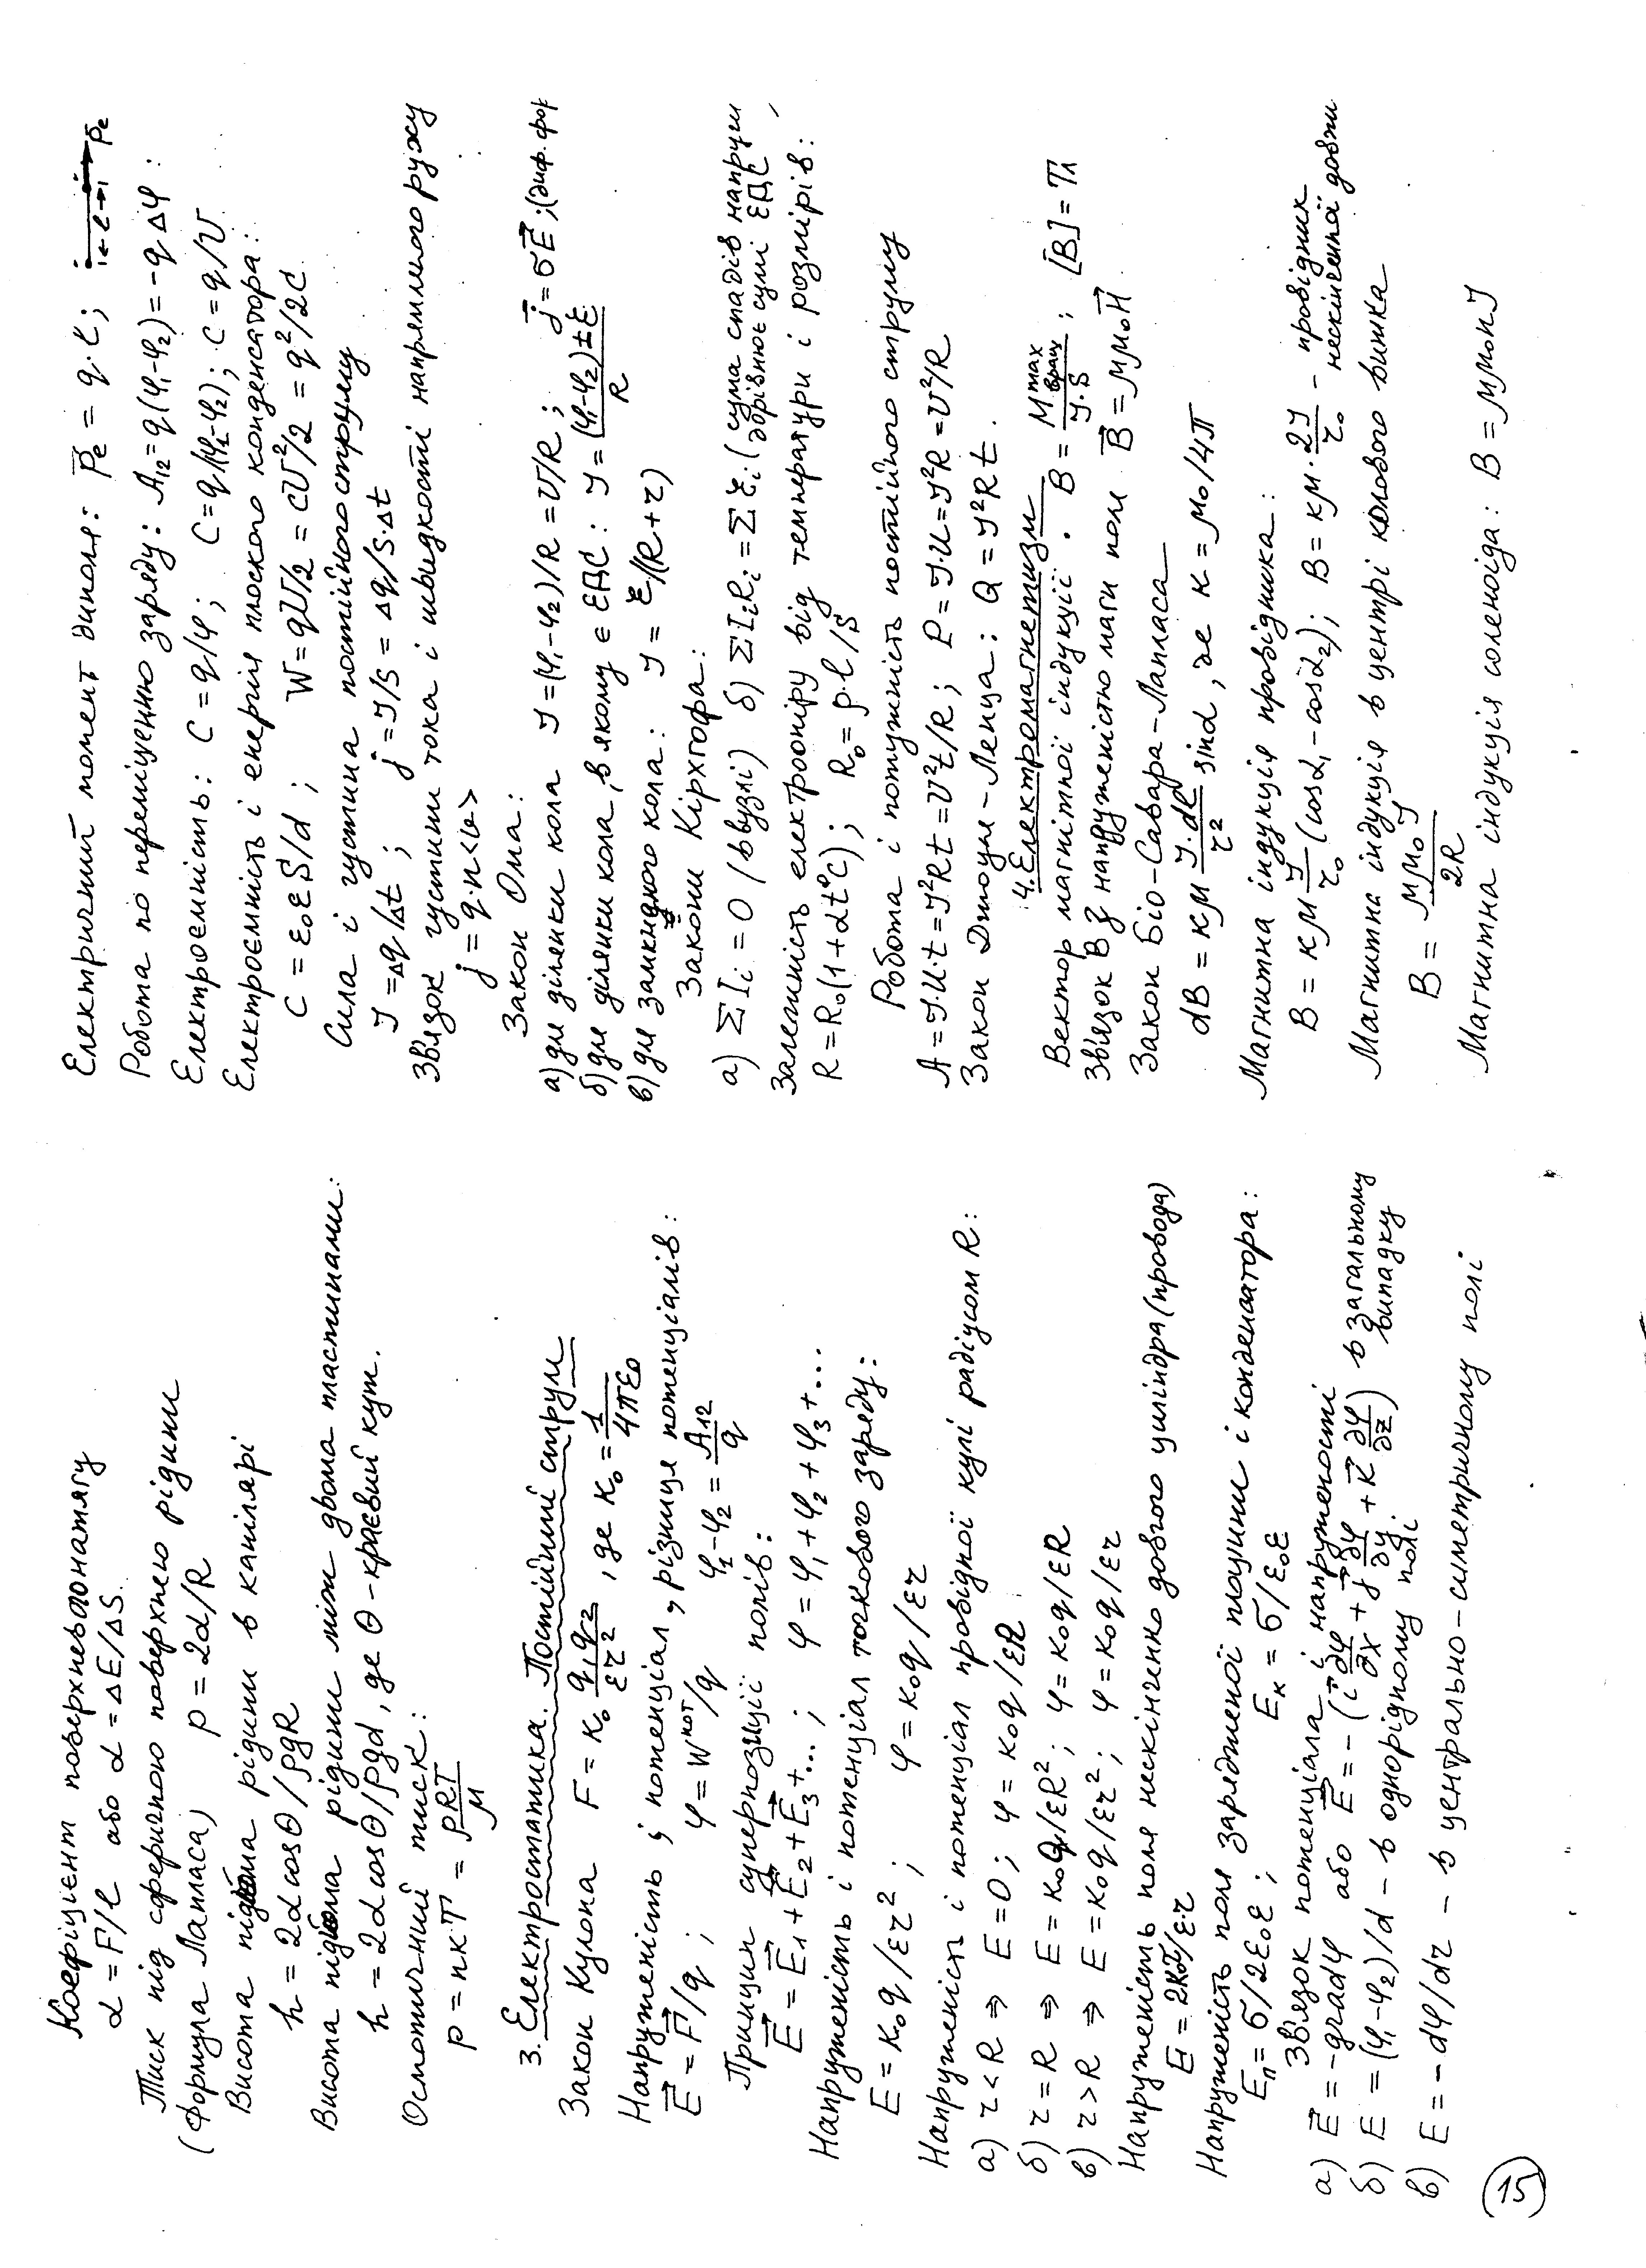 Коефіцієнт поверхневого натягу
α = F/ℓ або α = ΔE/ΔS
Тиск під сферичною поверхнею рідини
(Формула Лапласа) p = 2α/R
Висота підйома рідини в капілярі
h = 2α cosθ/ρgR
Висота підйома рідини між двома пластинами:
h = 2α cosθ/ρgd, де θ - краєвий кут.
Осмотичний тиск:
p = nкT = ρRT/μ
3. Електростатика. Постійний струм
Закон Кулона F = к₀ q₁q₂/εr², де к₀ = 1/4πε₀
Напруженість; потенціал, різниця потенціалів:
E⃗ = F⃗/q; φ = Wпот/q φ₁-φ₂ = A₁₂/q
Принцип суперпозиції полів:
E⃗ = E⃗₁ + E⃗₂ + E⃗₃ + ...; φ = φ₁ + φ₂ + φ₃ + ...
Напруженість і потенціал точкового заряду:
E = к₀q/εr²; φ = к₀q/εr
Напруженість і потенціал провідної кулі радіусом R:
а) r < R ⇒ E = 0; φ = к₀q/εR
б) r = R ⇒ E = к₀q/εR²; φ = к₀q/εR
в) r > R ⇒ E = к₀q/εr²; φ = к₀q/εr
Напруженість поля нескінченко довгого циліндра (провода)
E = 2к₀τ/ε·r
Напруженість поля зарядженої площини і конденсатора:
Eп = σ/2ε₀ε; Eк = σ/ε₀ε
Зв'язок потенціала і напруженості
а) E⃗ = -gradφ або E⃗ = -(i⃗ ∂φ/∂x + j⃗ ∂φ/∂y + к⃗ ∂φ/∂z) в загальному випадку
б) E = (φ₁-φ₂)/d - в однорідному полі
в) E = -dφ/dr - в центрально-симетричному полі
15
Електричний момент диполя: p⃗e = q·ℓ; ←ℓ→ p⃗e
Робота по переміщенню заряду: A₁₂ = q(φ₁-φ₂) = -qΔφ:
Електроємність: C = q/φ; C = q/(φ₁-φ₂); C = q/U
Електроємність і енергія плоского конденсатора:
C = ε₀εS/d; W = qU/2 = CU²/2 = q²/2C.
Сила і густина постійного струму
J = Δq/Δt; j = J/S = Δq/S·Δt
Зв'язок густини тока і швидкості напрямленого руху
j = q·n<v>
Закон Ома:
а) для ділянки кола J = (φ₁-φ₂)/R = U/R; j⃗ = σE⃗; (диф. фор
б) для ділянки кола, в якому є ЕДС: J = (φ₁-φ₂)±ℰ/R
в) для замкнутого кола: J = ℰ/(R+r)
Закони Кірхгофа:
а) ΣIᵢ = 0 (в вузлі) б) ΣIᵢRᵢ = Σℰᵢ (сума спадів напруги дорівнює сумі ЕДС)
Залежність електроопіру від температури і розмірів:
R = R₀(1+αt°C); R₀ = ρ·ℓ/S
Робота і потужність постійного струму
A = J·U·t = J²Rt = U²t/R; P = J·U = J²R = U²/R
Закон Джоуля-Ленца: Q = J²Rt.
4. Електромагнетизм
Вектор магнітної індукції. B = Mmax вращ/J·S; [B] = Тл
Зв'язок B з напруженістю магн поля B⃗ = μμ₀H⃗
Закон Біо-Савара-Лапласа
dB = кμ J·dℓ/r² sinα, де к = μ₀/4π
Магнитна індукція провідника:
B = кμ J/r₀ (cosα₁ - cosα₂); B = кμ·2J/r₀ - провідник нескінченної довжи
Магнитна індукція в центрі колового витка
B = μμ₀J/2R
Магнитна індукція соленоїда: B = μμ₀nJ